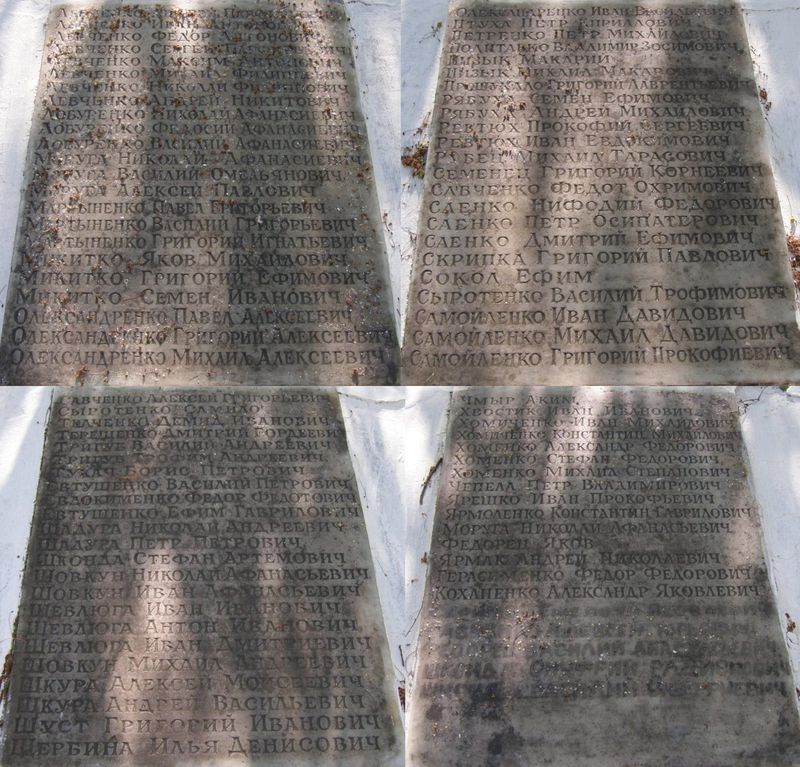 Левченко Федор Антонович
Левченко Сергей
Левченко Максим Антонович
Левченко Михаил Филиппович
Левченко Николай Филиппович
Левченко Андрей Никитович
Лобуренко Николай Афанасиевич
Лобуренко Федосий Афанасиевич
Лобуренко Василий Афанасиевич
Маруга Николай Афанасиевич
Маруга Василий Омельянович
Маруга Алексей Павлович
Мартыненко Павел Григорьевич
Мартыненко Василий Григорьевич
Мартыненко Григорий Игнатьевич
Микитко Яков Михайлович
Микитко Григорий Ефимович
Микитко Семен Иванович
Олександренко Павел Алексеевич
Олександренко Григорий Алексеевич
Олександренко Михаил Алексеевич
Олександренко Иван Васильевич
Петр Кириллович
Петренко Петр Михайлович
Политанко Владимир Зосимович
Пызык Макарий
Пызык Михаил Макарович
Прошакало Григорий Лаврентьевич
Рябуха Семен Ефимович
Рябуха Андрей Михайлович
Ревтюх Прокофий Сергеевич
Ревтюх Иван Евдокимович
Рубен Михаил Тарасович
Семенец Григорий Корнеевич
Савченко Федот Охримович
Саенко Нифодий Федорович
Саенко Петр Осипатерович
Саенко Дмитрий Ефимович
Скрипка Григорий Павлович
Сокол Ефим
Сыротенко Василий Трофимович
Самойленко Иван Давидович
Самойленко Михаил Давидович
Самойленко Григорий Прокофиевич
Савченко Алексей Григорьевич
Сыротенко Самило
Ткаченко Демид Иванович
Терещенко Дмитрий Гордеевич
Тригуб Василий Андреевич
Тригуб Трофим Андреевич
Тукач Борис Петрович
Евтушенко Василий Петрович
Евдокименко Федор Федотович
Евтушенко Ефим Гаврилович
Шадура Николай Андреевич
Шадура Петр Петрович
Шконда Стефан Артемович
Шовкун Николай Афанасьевич
Шовкун Иван Афанасьевич
Шевлюга Иван Иванович
Шевлюга Антон Иванович
Шевлюга Иван Дмитриевич
Шовкун Михаил Андреевич
Шкура Алексей Моисеевич
Шкура Андрей Васильевич
Шуст Григорий Иванович
Щербина Илья Денисович
Чмыр Аким
Хвостик Иван Иванович
Хомиченко Иван Михайлович
Хомиченко Константин Михайлович
Хоменко Александр Федорович
Хоменко Стефан Федорович
Хоменко Михаил Степанович
Чепела Петр Владимирович
Ярешко Иван Прокофьевич
Ярмоленко Константин Гаврилович
Моруга Николай Афанасьевич
Федорен Яков
Ярмак Андрей Николаевич
Герасименко Федор Федорович
Коханенко Александр Яковлевич